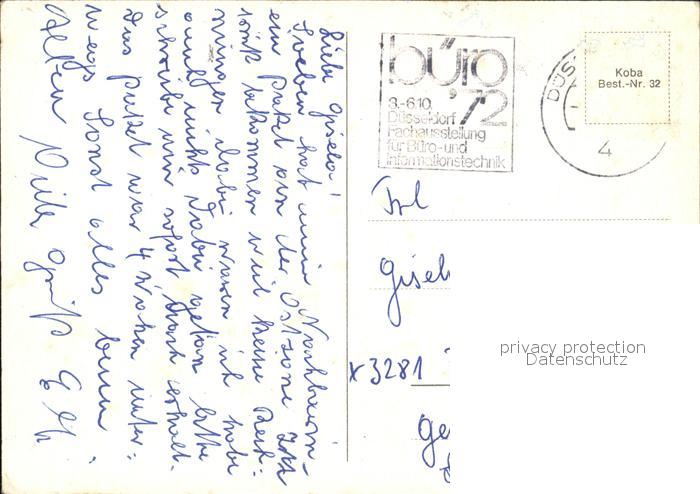 Liebe Gisela!
Soeben hat meine Nachbarin
ein Paket aus der Ostzone
zurück bekommen weil keine Bech-
nungen dabei waren ich habe
auch nichts dabei getan bitte
schreibe mir sofort nach erhalt.
Das paket war 4 Wochen unter-
wegs Sonst alles beim
Alten Viele Grüße
büro
'72
3.-6.10.
Düsseldorf
Fachausstellung
für Büro-und
Informationstechnik
DÜS
4
Koba
Best.-Nr. 32
Frl
Gisel
x3281
Ge
privacy protection
Datenschutz